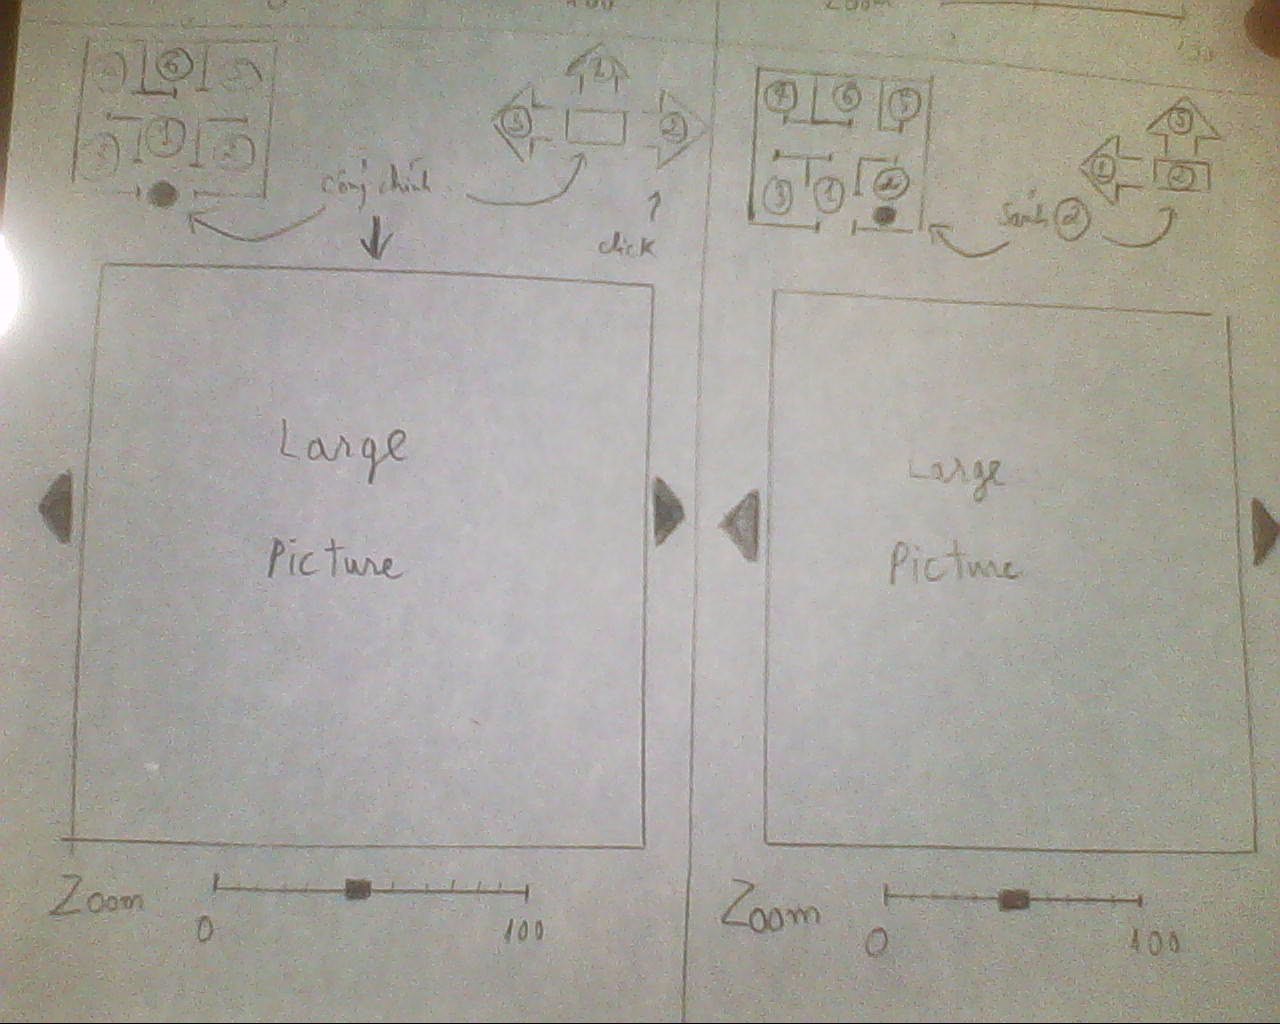 Zoom
6
1
cổng chính
1
3
2
click
Large
Picture
Zoom
0
100
7 6 5
3 1 2
3
1 2
sảnh 2
Large
Picture
Zoom
0
100